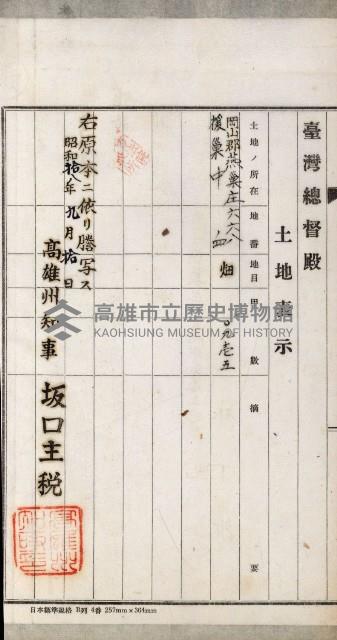 臺灣總督殿
土地表示
土地ノ所在 地番 地目 甲數 摘要
岡山郡燕巢庄
援巢中
六六八
畑
〇九壱五
右原本ニ依リ謄写ス
昭和拾八年九月拾日
高雄州知事 坂口主税
高雄市立歷史博物館
KAOHSIUNG MUSEUM OF HISTORY
日本標準規格 B列 4番 257mm×364mm